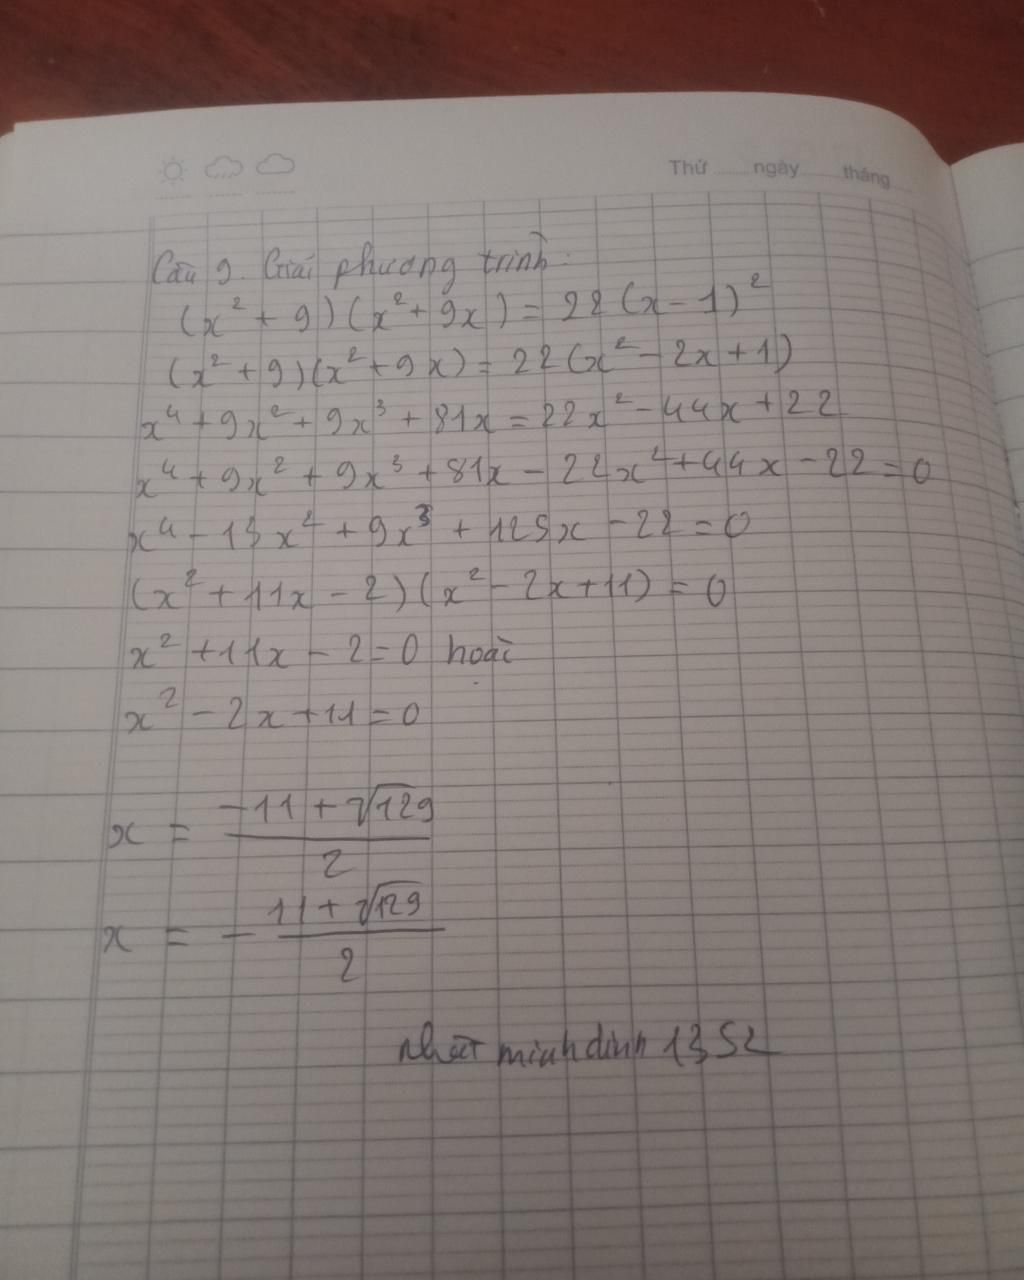 Thứ ngày tháng
Câu 9. Giải phương trình:
(x² + 9)(x² + 9x) = 22(x - 1)²
(x² + 9)(x² + 9x) = 22(x² - 2x + 1)
x⁴ + 9x² + 9x³ + 81x = 22x² - 44x + 22
x⁴ + 9x² + 9x³ + 81x - 22x² + 44x - 22 = 0
x⁴ - 13x² + 9x³ + 125x - 22 = 0
(x² + 11x - 2)(x² - 2x + 11) = 0
x² + 11x - 2 = 0 hoặc
x² - 2x + 11 = 0
x = \frac{-11 + √129}{2}
x = -\frac{11 + √129}{2}
nhất minh dinh 1352